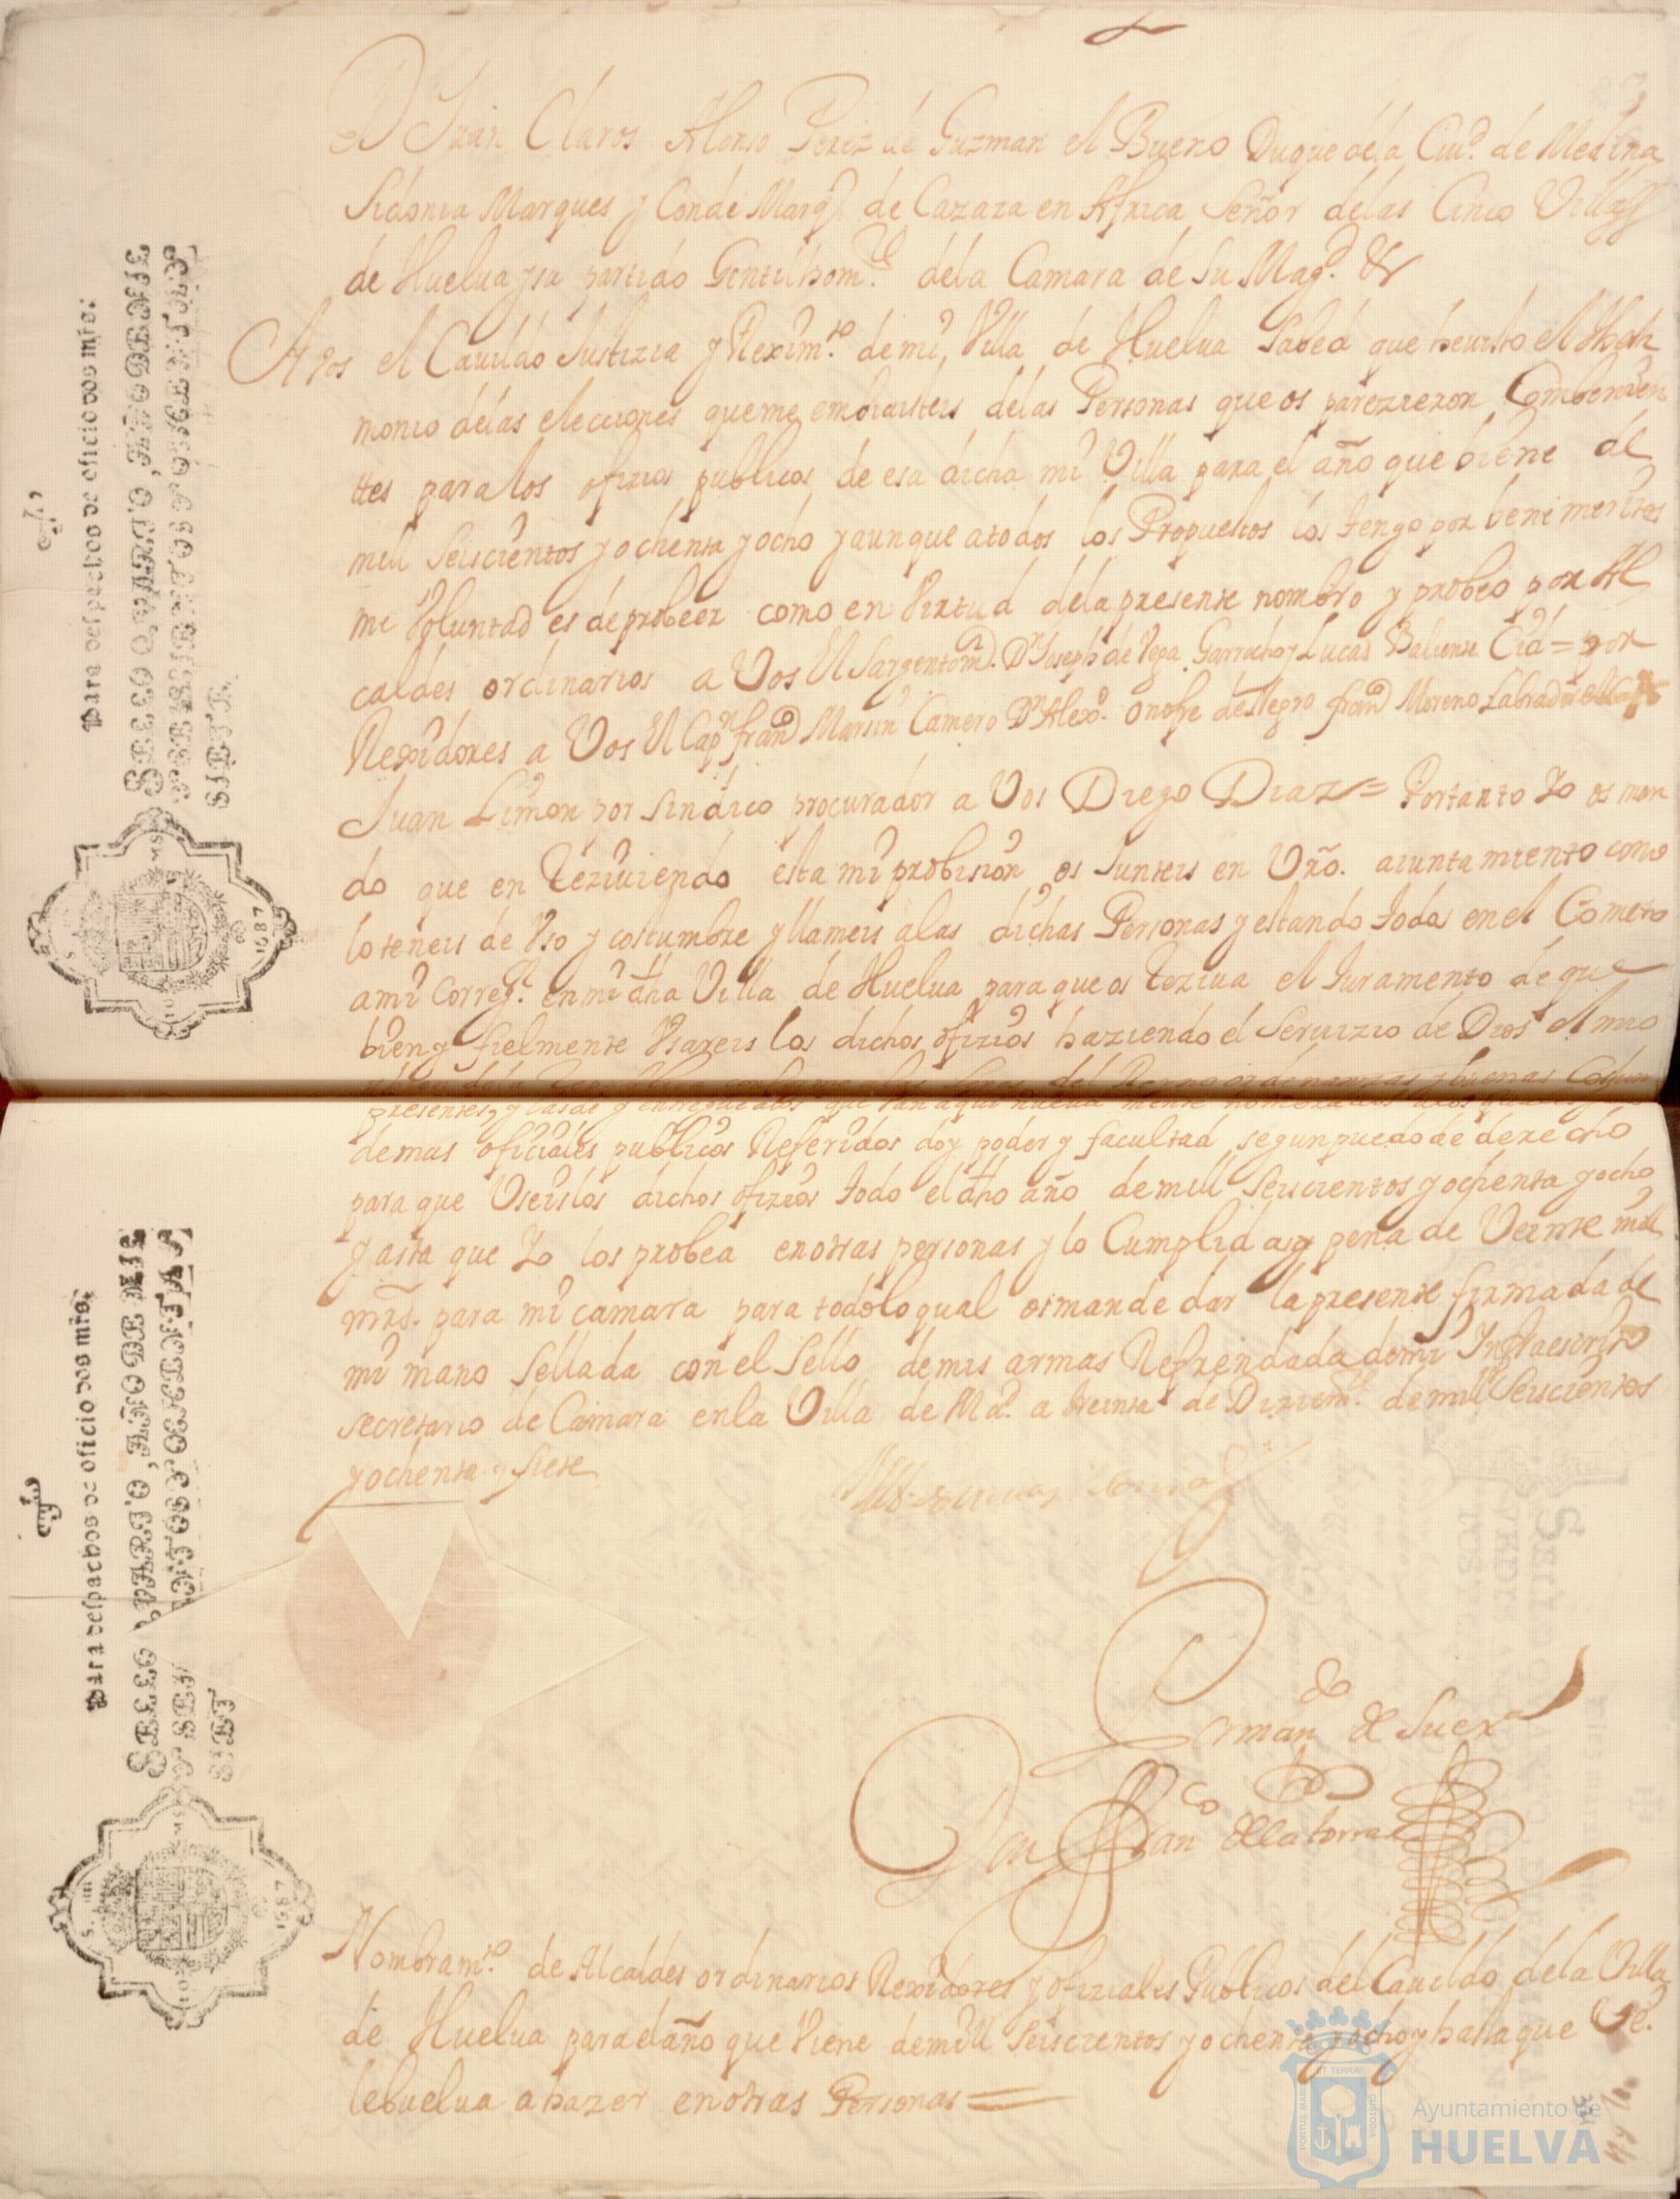 D Juan Claros Alonso Perez de Guzman el Bueno Duque de la Ciud. de Medina
Sidonia Marques y Conde Marqs. de Cazaza en Africa Señor de las Cinco Villas
de Huelua y su partido Gentilhom.e de la Camara de Su Magd. &
A Vos el Cauildo Justizia y Reximto. de mi Villa de Huelua Sabed que he uisto el
monio de las elecciones que me embiasteis de las Personas que os parezieron Combenien
tes para los ofizios publicos de esa dicha mi Villa para el año que biene de
mill Seiscientos y ochenta y ocho y aunque a todos los Propuestos los tengo por benemeritos
mi Voluntad es de probeer como en Virtud de la presente nombro y probeo por Al
caldes ordinarios a Vos El Sargentom. Dn Joseph de Vega Garrocho y Lucas Baliente Cid = por
Rexidores a Vos El Capn fran.co Martin Camero Dn Alexo. Onofre de Negro fran.co Moreno Labrador
Juan Limon por Sindico procurador a Vos Diego Diaz = Portanto Yo os man
do que en Reziuiendo esta mi probision os Junteis en Vro. aiuntamiento como
lo teneis de Vso y costumbre y llameis a las dichas Personas y estando todos en el Cometo
a mi Corregr. en mi dha Villa de Huelua para que os Reziua el Juramento de que
bien y fielmente Vsareis los dichos ofizios haziendo el Seruizio de Dios el mio
del Reyno ordenanzas y buenas Costum
presentes, y que van aqui nueua mente nombrados
demas oficiales publicos Referidos doy poder y facultad segun puedo de derecho
para que Vseis los dichos ofizios todo el dho año de mill Seiscientos y ochenta y ocho
y asta que Yo los probea en otras personas y lo Cumplid asy pena de Veinte mill
mrs. para mi camara para todo lo qual os mande dar la presente firmada de
mi mano Sellada con el Sello de mis armas Refrendada de mi Infraescripto
secretario de Camara en la Villa de Md. a treinta de Diziembe. de mill Seiscientos
y ochenta y siete
Don Franco de la torre
Nombramto. de Alcaldes ordinarios Rexidores y ofiziales Publicos del Cauildo de la Villa
de Huelua para el año que Viene de mill Seiscientos y ochenta y ocho y hasta que V.e.
le buelua a hazer en otras Personas =
Para despachos de oficio dos mrs.
SELLO QVARTO, AÑO DE MIL
Y SEISCIENTOS Y OCHENTA Y
SIETE
1687
Para despachos de oficio dos mrs.
SELLO QVARTO, AÑO DE MIL
1687
Ayuntamiento de
HUELVA